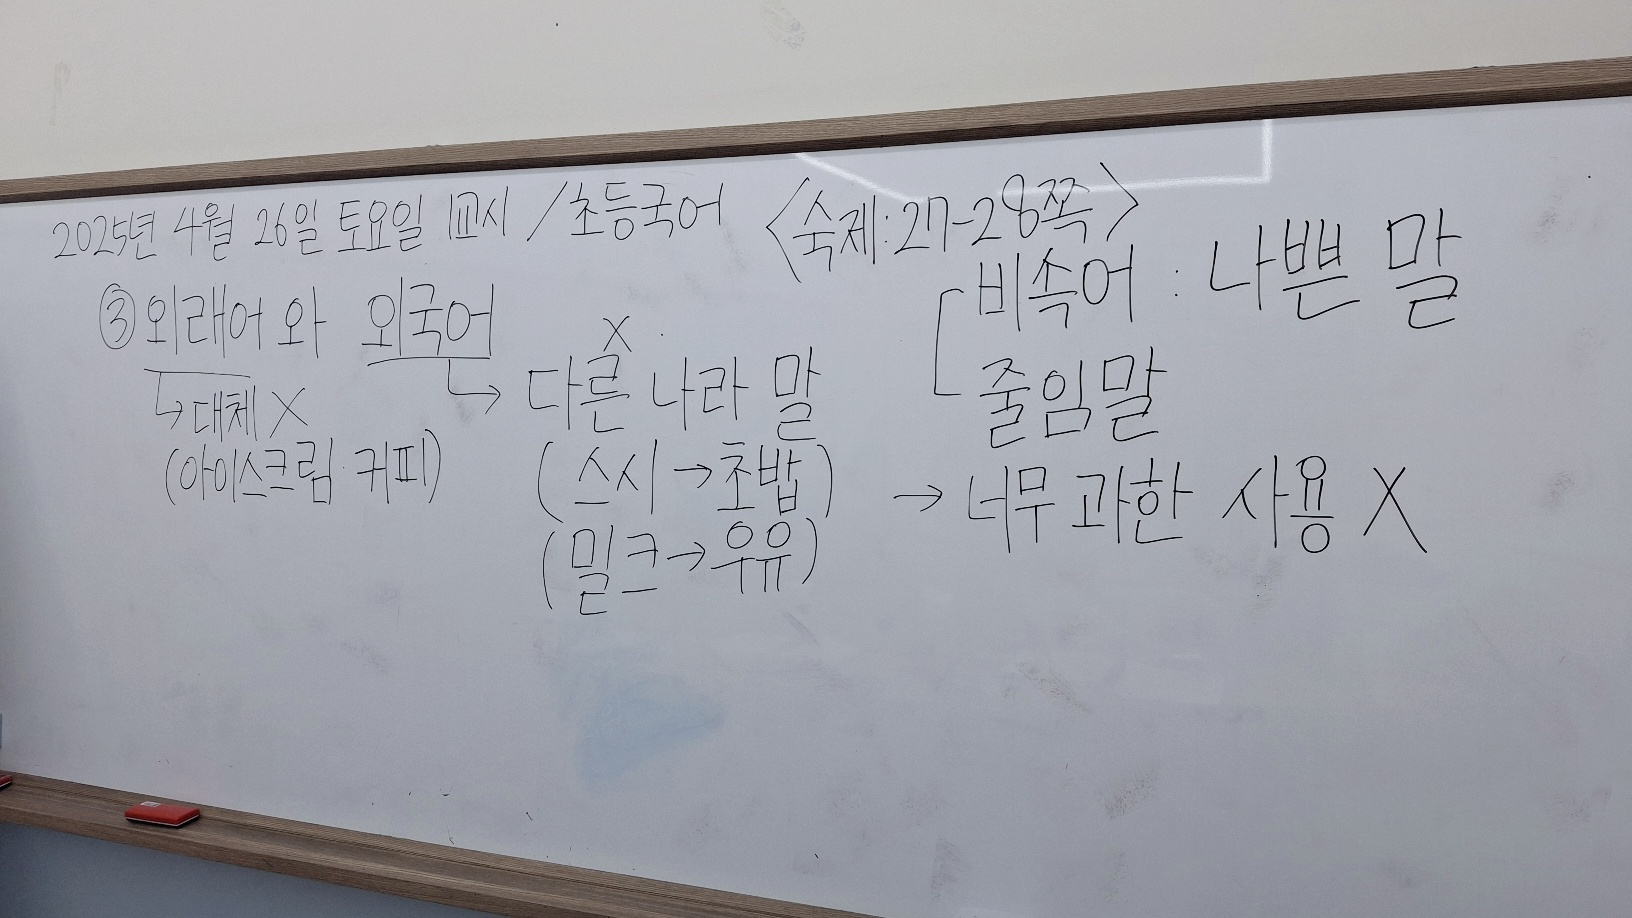 2025년 4월 26일 토요일 1교시 / 초등국어 <숙제: 27-28쪽>
③ 외래어와 외국어
↳ 대체 X
(아이스크림. 커피)
X
↳ 다른 나라 말
(스시 → 초밥)
(밀크 → 우유)
비속어 : 나쁜 말
줄임말
→ 너무 과한 사용 X